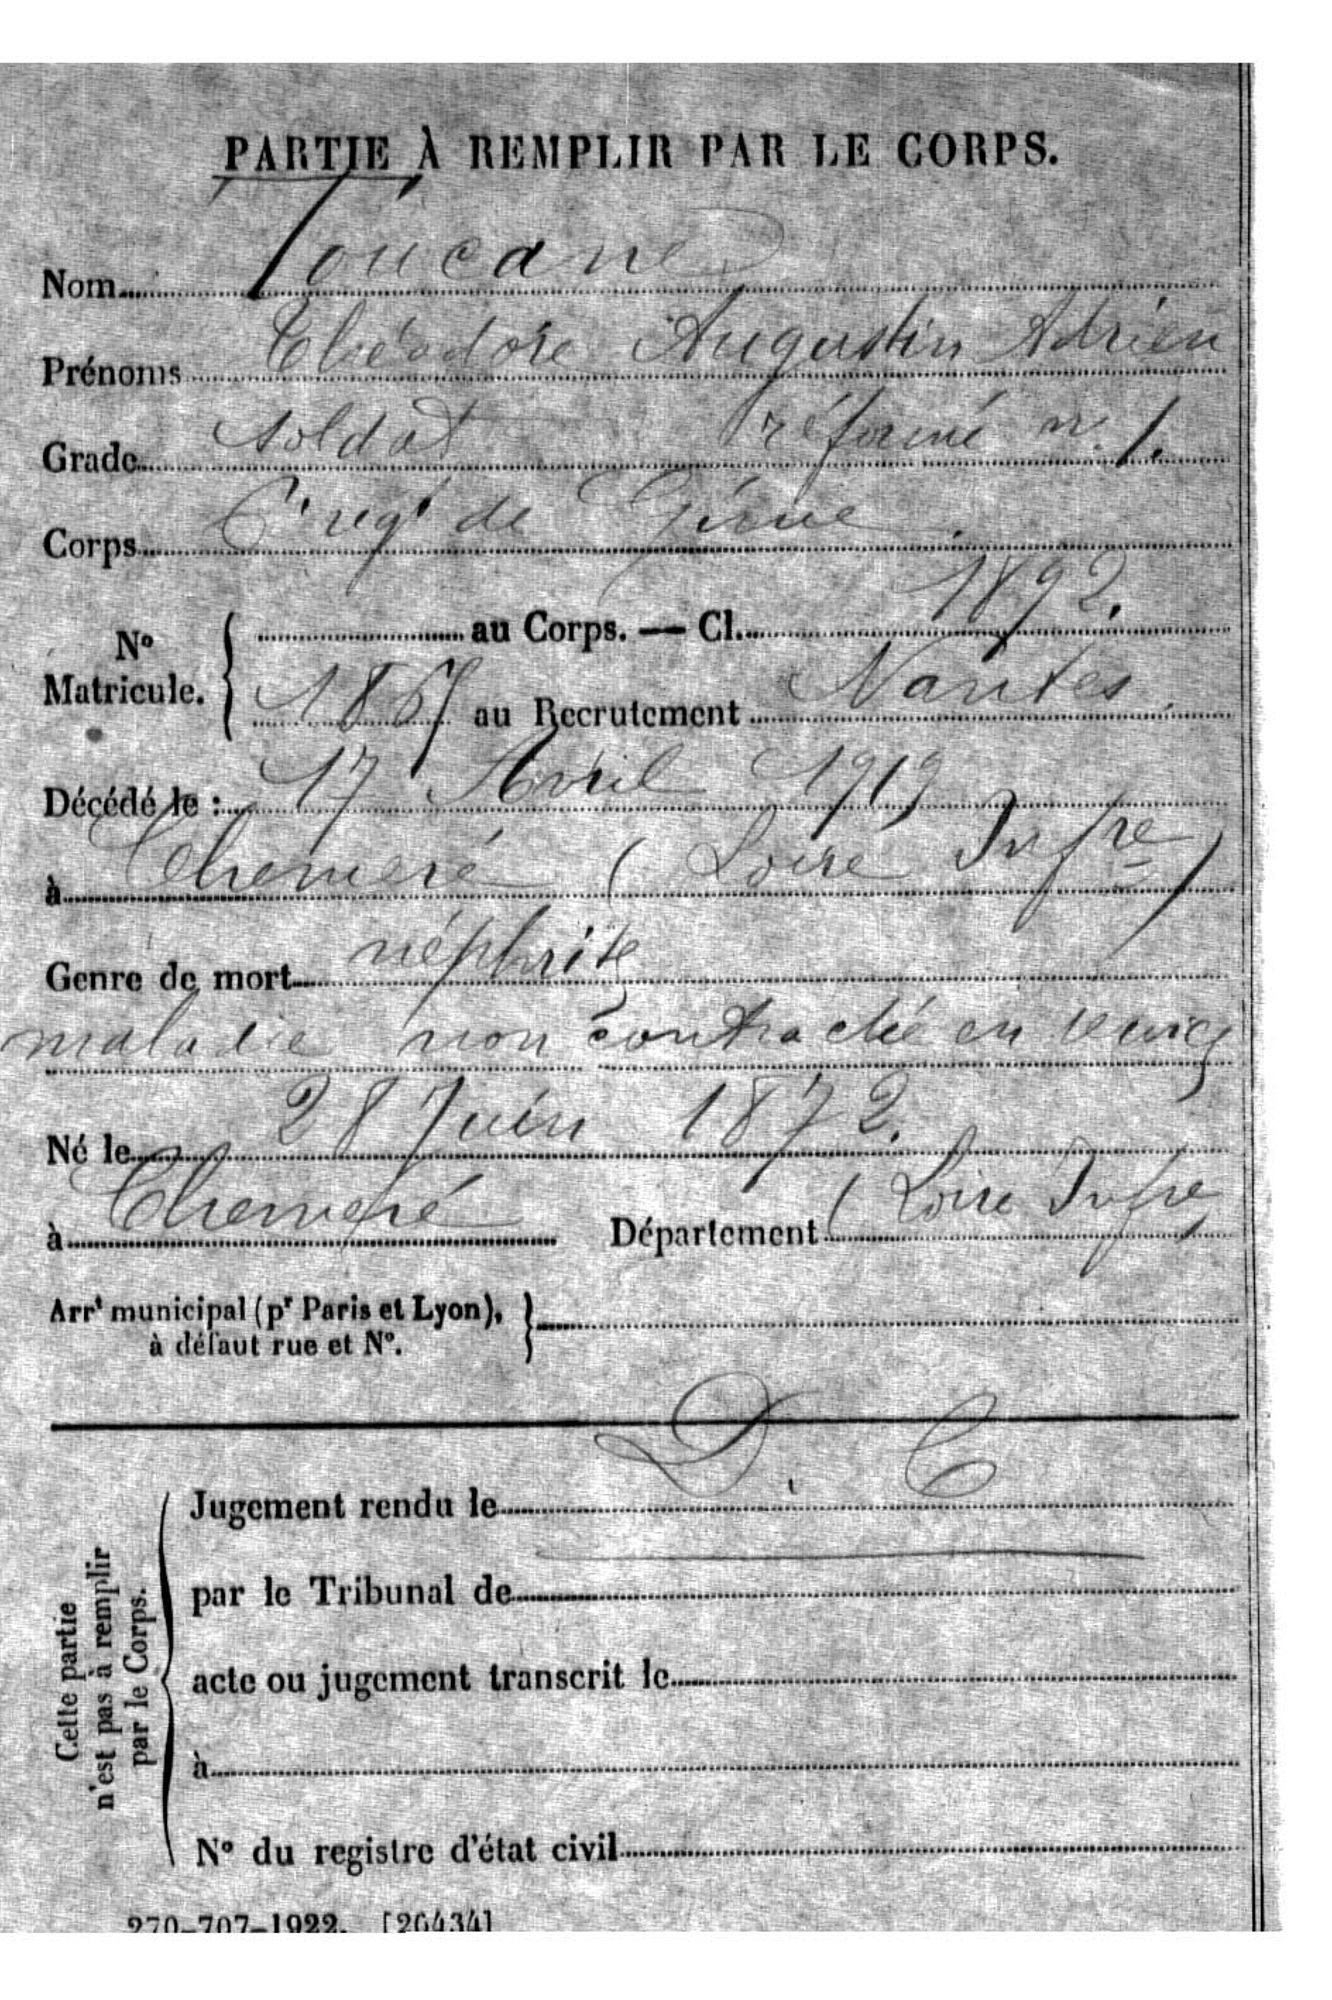 PARTIE À REMPLIR PAR LE CORPS.
Nom Toucane
Prénoms Théodore Augustin Adrien
Grade soldat réformé n. 1.
Corps 6e régt de Génie.
No Matricule. { au Corps. — Cl. 1892.
1867 au Recrutement Nantes
Décédé le : 17 Avril 1919
à Chemeré (Loire Infre)
Genre de mort néphrite
maladie non contractée en servce
Né le 28 Juin 1872.
à Chemeré Département (Loire Infre
Arrt municipal (pr Paris et Lyon), }
à défaut rue et No.
D. C
Cette partie n'est pas à remplir par le Corps.
Jugement rendu le
par le Tribunal de
acte ou jugement transcrit le
à
No du registre d'état civil
270-707-1922. [26434]